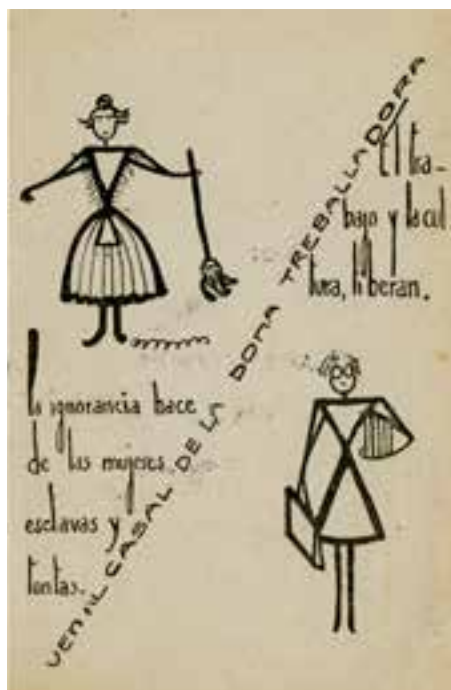 El tra-
bajo y la cul
tura, liberan.
La ignorancia hace
de las mujeres
esclavas y
tontas.
VEN AL CASAL DE LA DONA TREBALLADORA